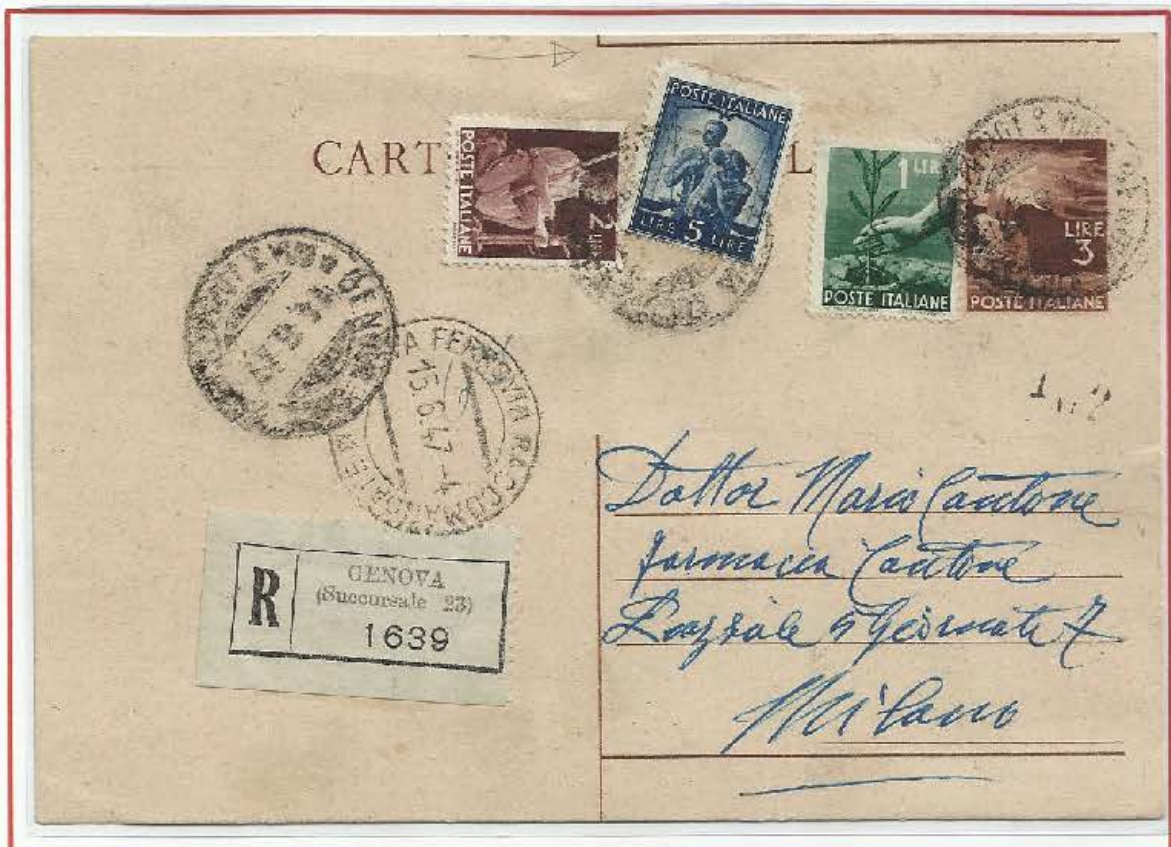 CART L
POSTE ITALIANE
2 LIRE
POSTE ITALIANE
LIRE 5 LIRE
1 LIRE
POSTE ITALIANE
LIRE
3
POSTE ITALIANE
GENOVA
A FERROVIA RACCOM
15.6.47-4
R
GENOVA
(Succursale 23)
1639
Dottor Mario Cantone
farmacia Cantone
5 Giornate 7
Milano